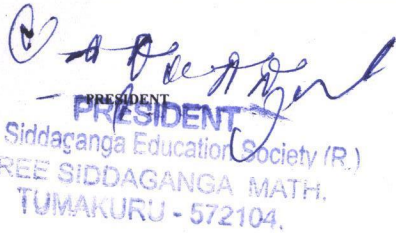 PRESIDENT
PRESIDENT
Siddaganga Education Society (R.)
REE SIDDAGANGA MATH,
TUMAKURU - 572104.